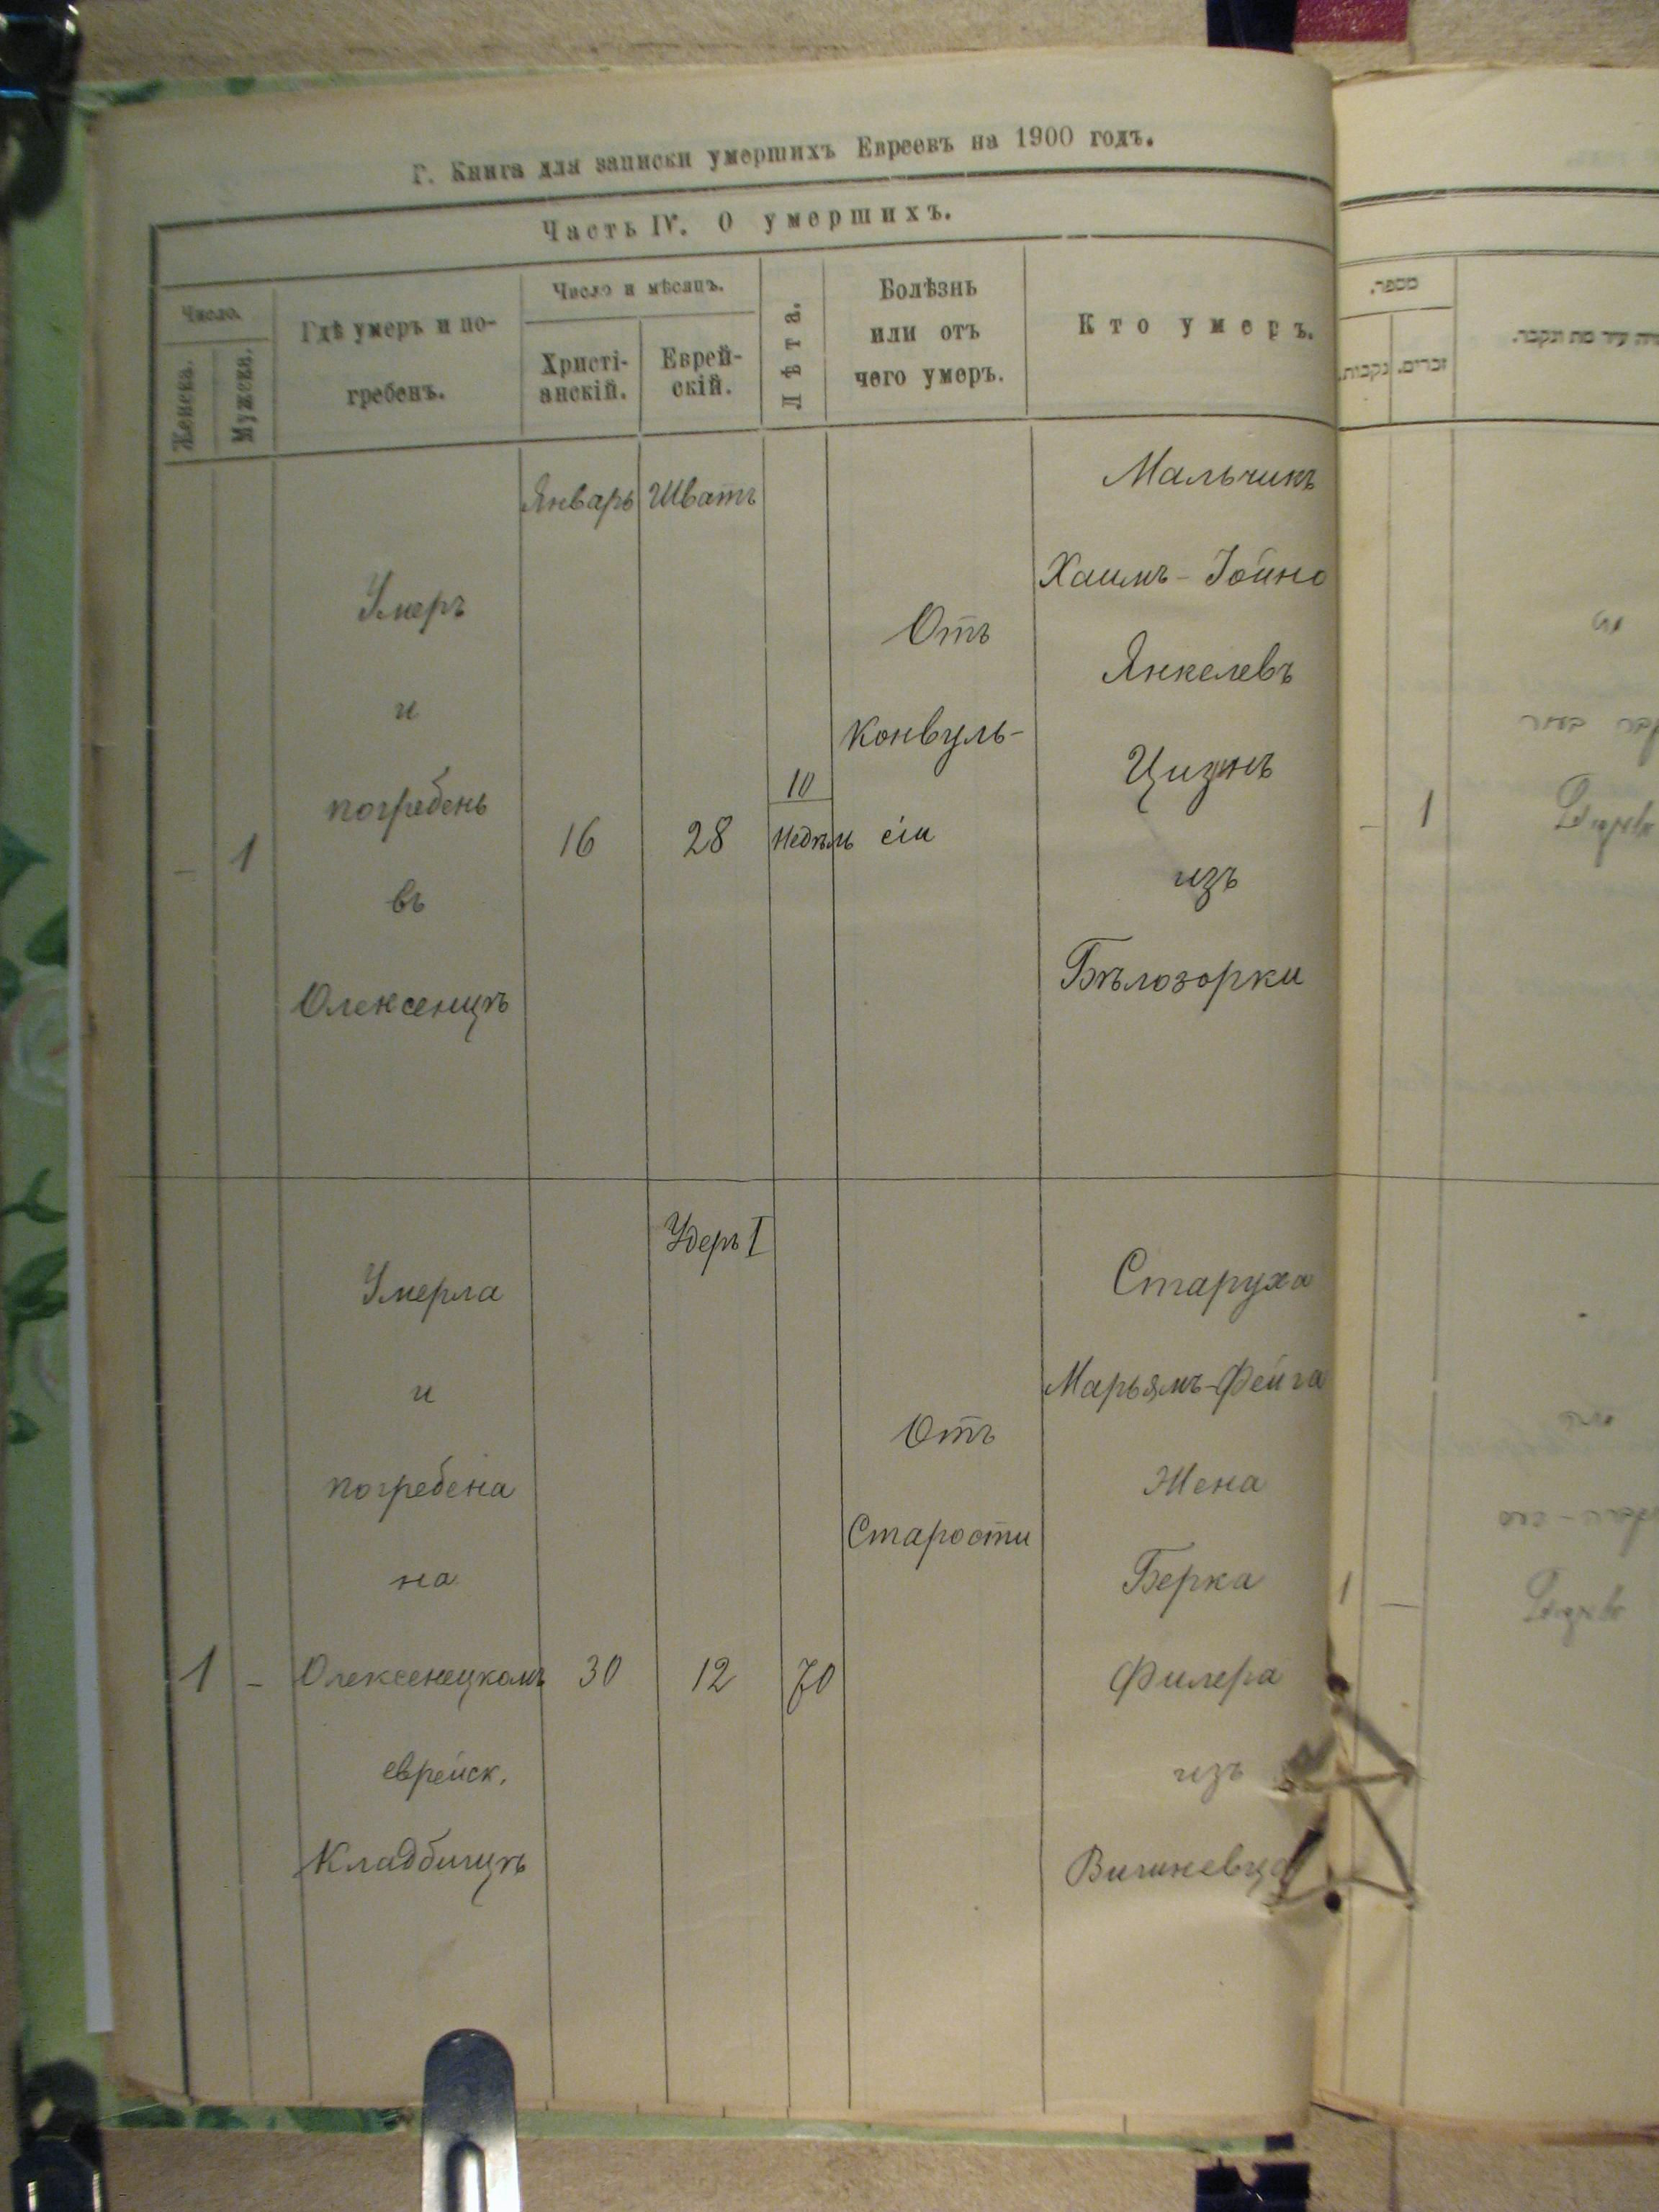 Г. Книга для записки умершихъ Евреевъ на 1900 годъ.
Часть IV. О умершихъ.
Число.
Женска.
Мужска.
Гдѣ умеръ и по-
гребенъ.
Число и мѣсяцъ.
Христі-
анскій.
Еврей-
скій.
Лѣта.
Болѣзнь
или отъ
чего умеръ.
Кто умеръ.
מספר.
נקבות.
זכרים.
עיר מת ונקבר.
Январь
Шватъ
-
1
Умеръ
и
погребенъ
въ
Олексенцѣ
16
28
10
Недѣль
Отъ
Конвуль-
сіи
Мальчикъ
Хаимъ-Іойно
Янкелевъ
Цизинъ
изъ
Бѣлозорки
- 1
Удеръ I
1
-
Умерла
и
погребена
на
Олексенецкомъ
еврейск.
Кладбищѣ
30
12
70
Отъ
Старости
Старуха
Марьямъ-Фейга
Жена
Берка
Филера
изъ
Вишневца
1 -